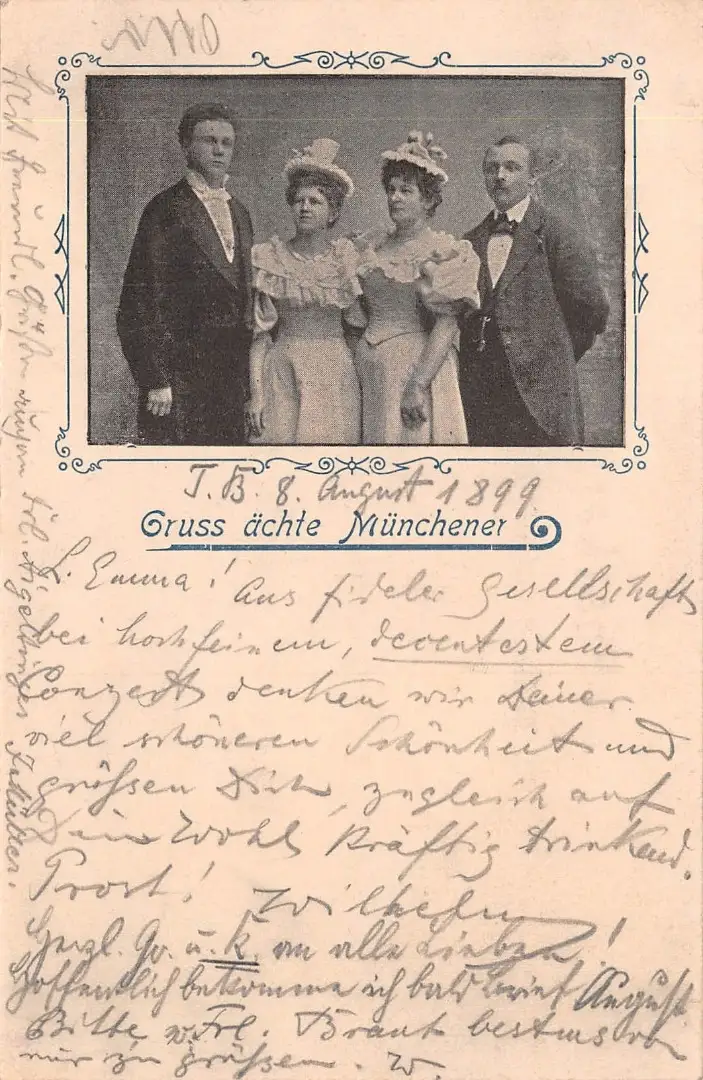 T. B. 8. August 1899.
Gruss ächte Münchener
L. Emma! Aus fideler Gesellschaft
bei hochfeinem, decentestem
Conzert denken wir Deiner
viel schöneren Schönheit und
grüßen Dich, zugleich auf
Dein Wohl kräftig trinkend.
Prost! Wilhelm!
Herzl. Gr. u. K. an alle Lieben!
Hoffentlich bekomme ich bald Brief August
Bitte, Frl. Braut bestens von
mir zu grüßen. W.